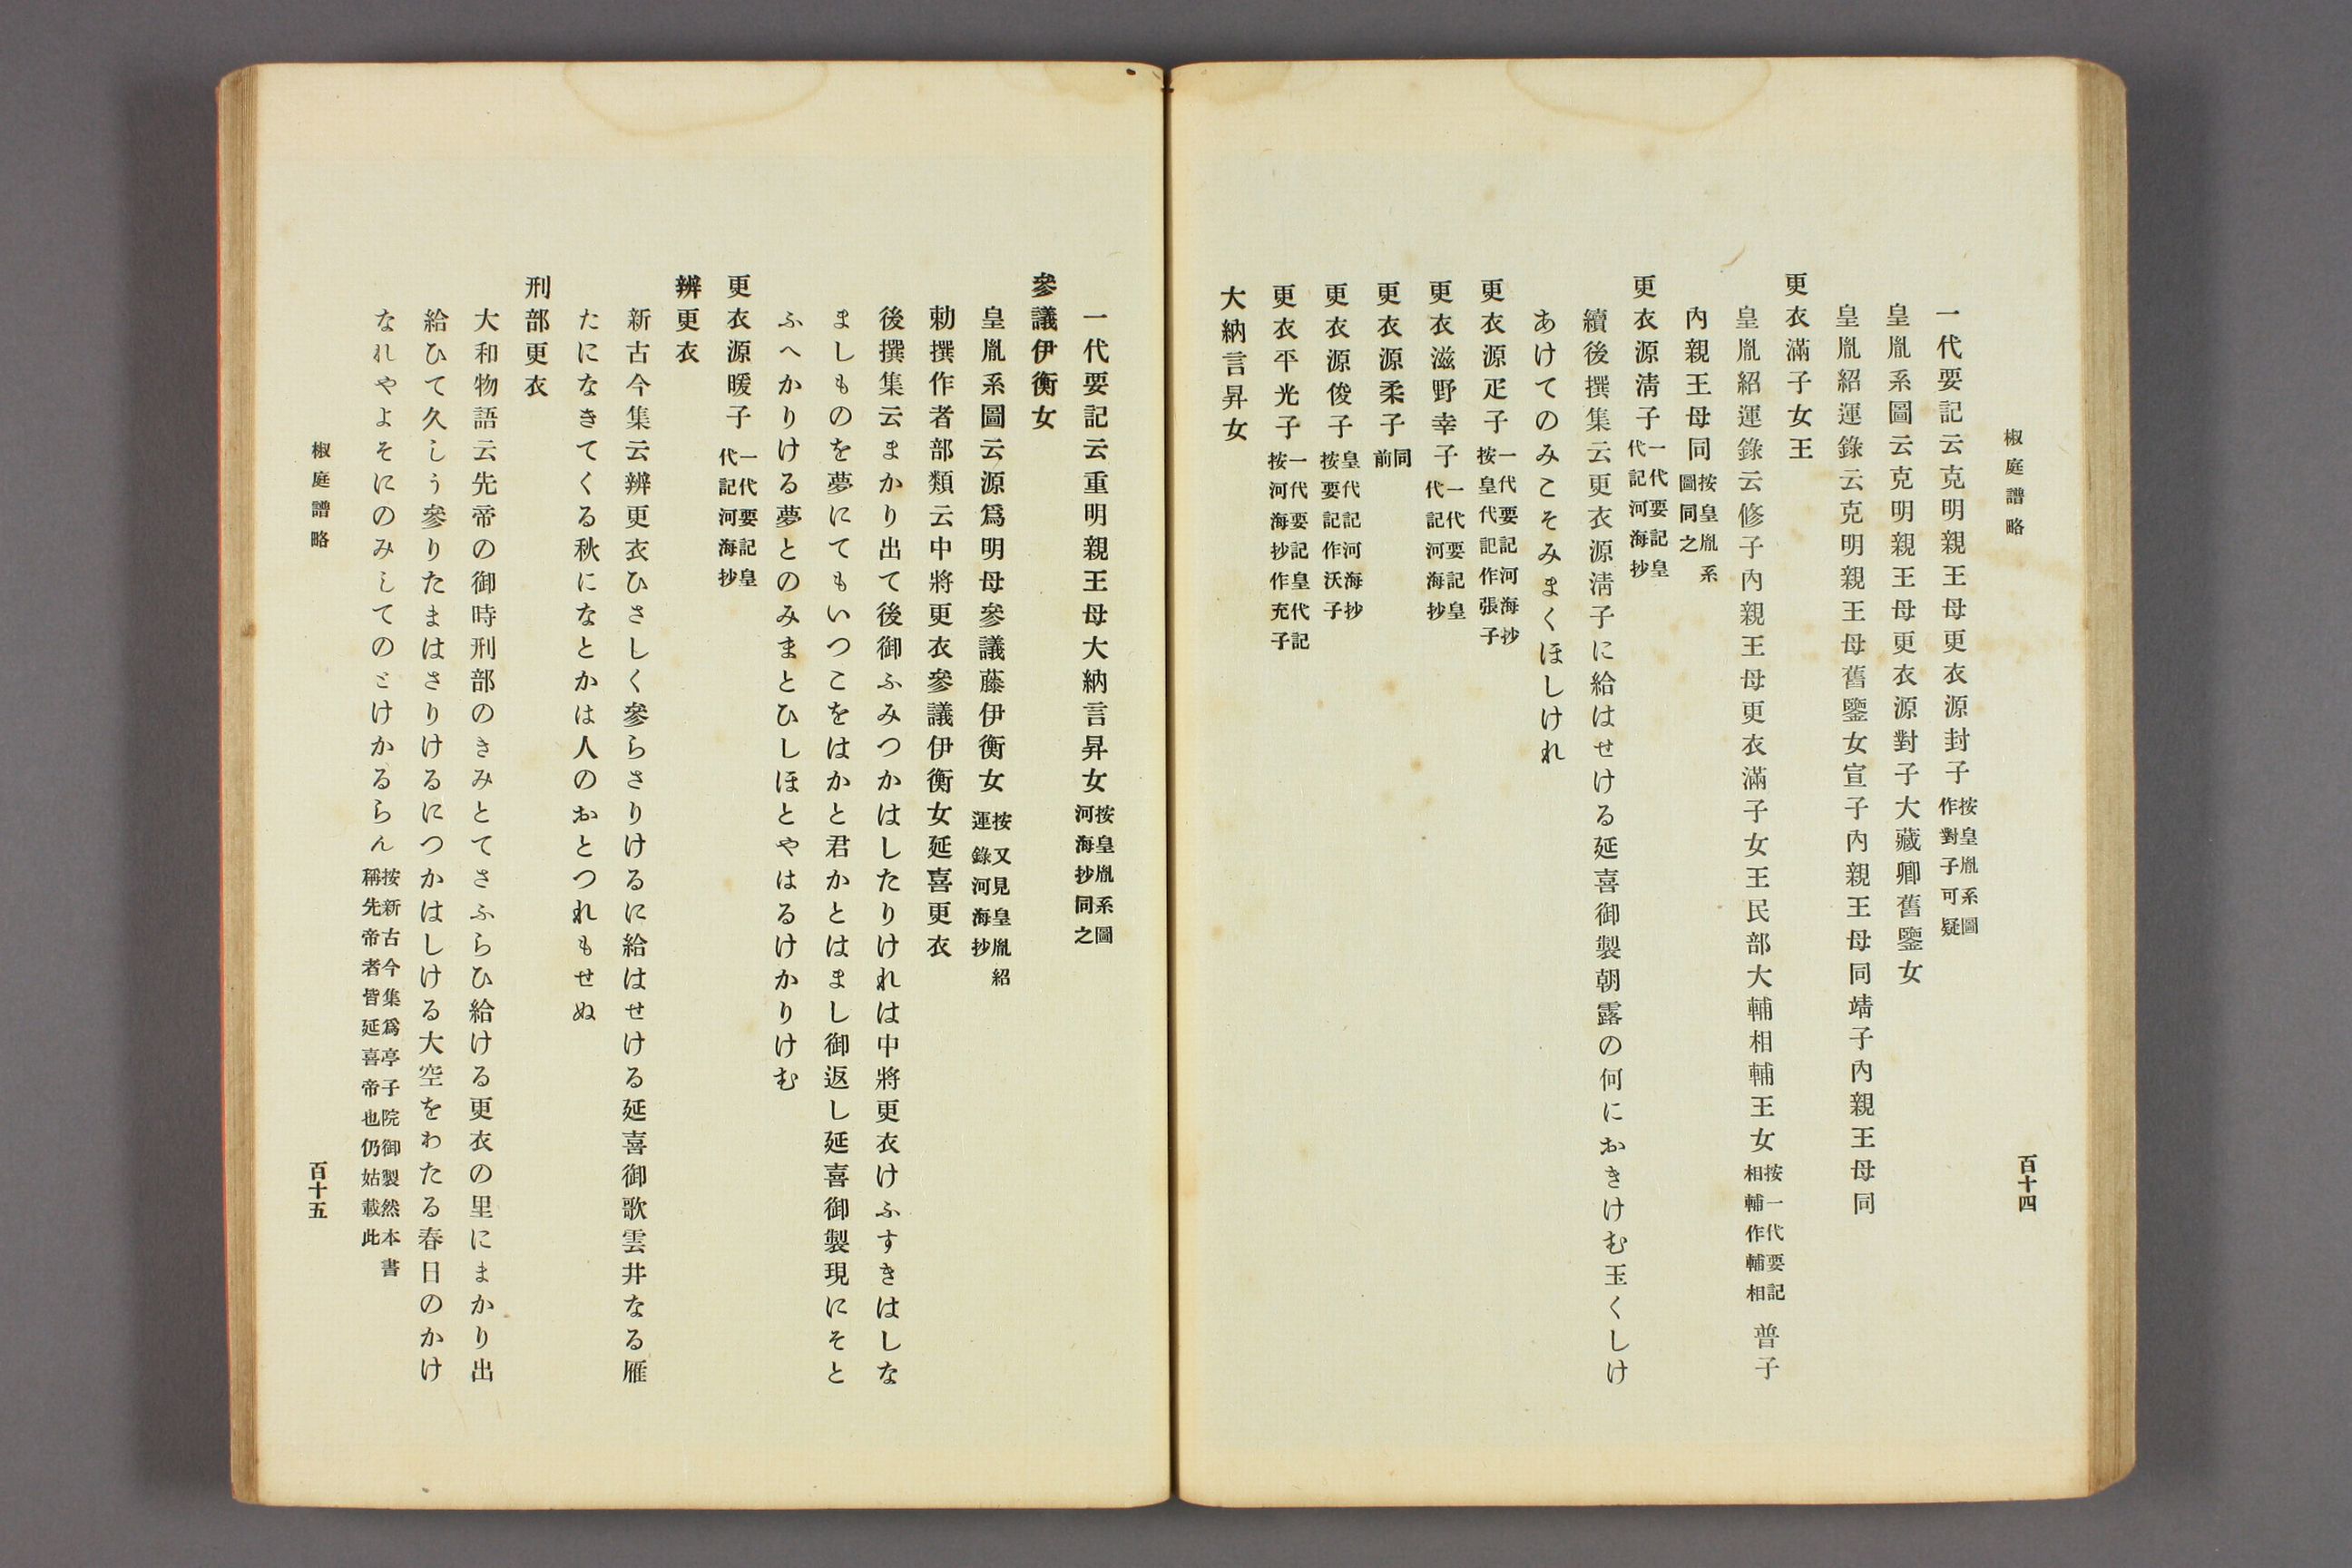 椒庭譜略
百十四
一代要記云克明親王母更衣源封子按皇胤系圖作對子可疑
皇胤系圖云克明親王母更衣源對子大藏卿舊鑒女
皇胤紹運錄云克明親王母舊鑒女宣子內親王母同靖子內親王母同
更衣滿子女王
皇胤紹運錄云修子內親王母更衣滿子女王民部大輔相輔王女按一代要記相輔作輔相普子
內親王母同按皇胤系圖同之
更衣源淸子一代要記皇代記河海抄
續後撰集云更衣源淸子に給はせける延喜御製朝露の何におきけむ玉くしけ
あけてのみこそみまくほしけれ
更衣源疋子一代要記河海抄按皇代記作張子
更衣滋野幸子一代要記皇代記河海抄
更衣源柔子同前
更衣源俊子皇代記河海抄按要記作沃子
更衣平光子一代要記皇代記按河海抄作充子
大納言昇女
一代要記云重明親王母大納言昇女按皇胤系圖河海抄同之
參議伊衡女
皇胤系圖云源爲明母參議藤伊衡女按又見皇胤紹運錄河海抄
勅撰作者部類云中將更衣參議伊衡女延喜更衣
後撰集云まかり出て後御ふみつかはしたりけれは中將更衣けふすきはしな
ましものを夢にてもいつこをはかと君かとはまし御返し延喜御製現にそと
ふへかりける夢とのみまとひしほとやはるけかりけむ
更衣源暖子一代要記皇代記河海抄
辨更衣
新古今集云辨更衣ひさしく參らさりけるに給はせける延喜御歌雲井なる雁
たになきてくる秋になとかは人のおとつれもせぬ
刑部更衣
大和物語云先帝の御時刑部のきみとてさふらひ給ける更衣の里にまかり出
給ひて久しう參りたまはさりけるにつかはしける大空をわたる春日のかけ
なれやよそにのみしてのとけかるらん按新古今集爲亭子院御製然本書稱先帝者皆延喜帝也仍姑載此
椒庭譜略
百十五